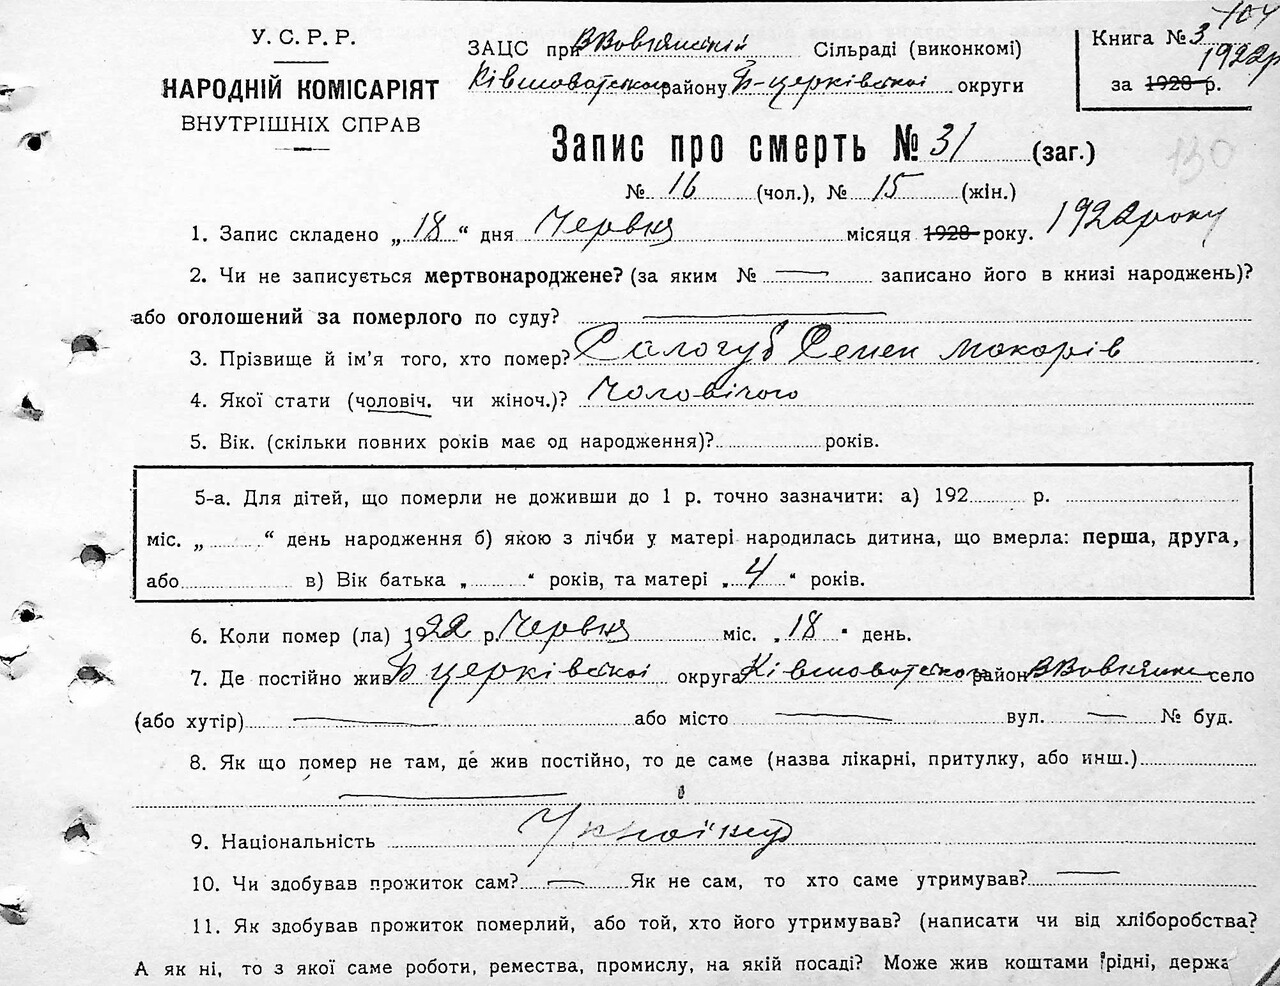 104
У.С.Р.Р.
НАРОДНІЙ КОМІСАРІЯТ
ВНУТРІШНІХ СПРАВ
ЗАЦС при Сільраді (виконкомі)
району Б-церківської округи
Книга № 3
1922р
за 1928 р.
Запис про смерть № 31 (заг.)
130
№ 16 (чол.), № 15 (жін.)
1. Запис складено „18“ дня Червня місяця 1928 року. 1922 року
2. Чи не записується мертвонароджене? (за яким № — записано його в книзі народжень)?
або оголошений за померлого по суду? —
3. Прізвище й ім’я того, хто помер? Салогуб Семен Макорів
4. Якої стати (чоловіч. чи жіноч.)? Чоловічого
5. Вік. (скільки повних років має од народження)? років.
5-а. Для дітей, що померли не доживши до 1 р. точно зазначити: а) 192 р.
міс. „ “ день народження б) якою з лічби у матері народилась дитина, що вмерла: перша, друга,
або в) Вік батька „ “ років, та матері „4“ років.
6. Коли помер (ла) 1922 р. Червня міс. „18“ день.
7. Де постійно жив Б церківської округа район село
(або хутір) — або місто — вул. — № буд.
8. Як що помер не там, де жив постійно, то де саме (назва лікарні, притулку, або инш.)
—
9. Національність
10. Чи здобував прожиток сам? — Як не сам, то хто саме утримував? —
11. Як здобував прожиток померлий, або той, хто його утримував? (написати чи від хліборобства?
А як ні, то з якої саме роботи, ремества, промислу, на якій посаді? Може жив коштами рідні, держа